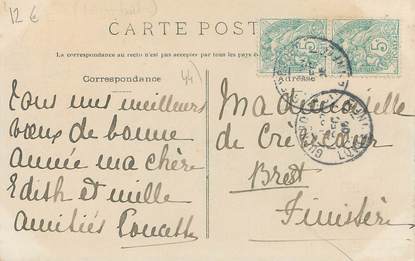 12 €
CARTE POST
La correspondance au recto n'est pas acceptée par tous les pays
Correspondance
Adresse
Tous mes meilleurs
vœux de bonne
Année ma chère
Edith et mille
Amitiés Poucette
Mademoiselle
de Crèvecœur
Brest
Finistère
5
5